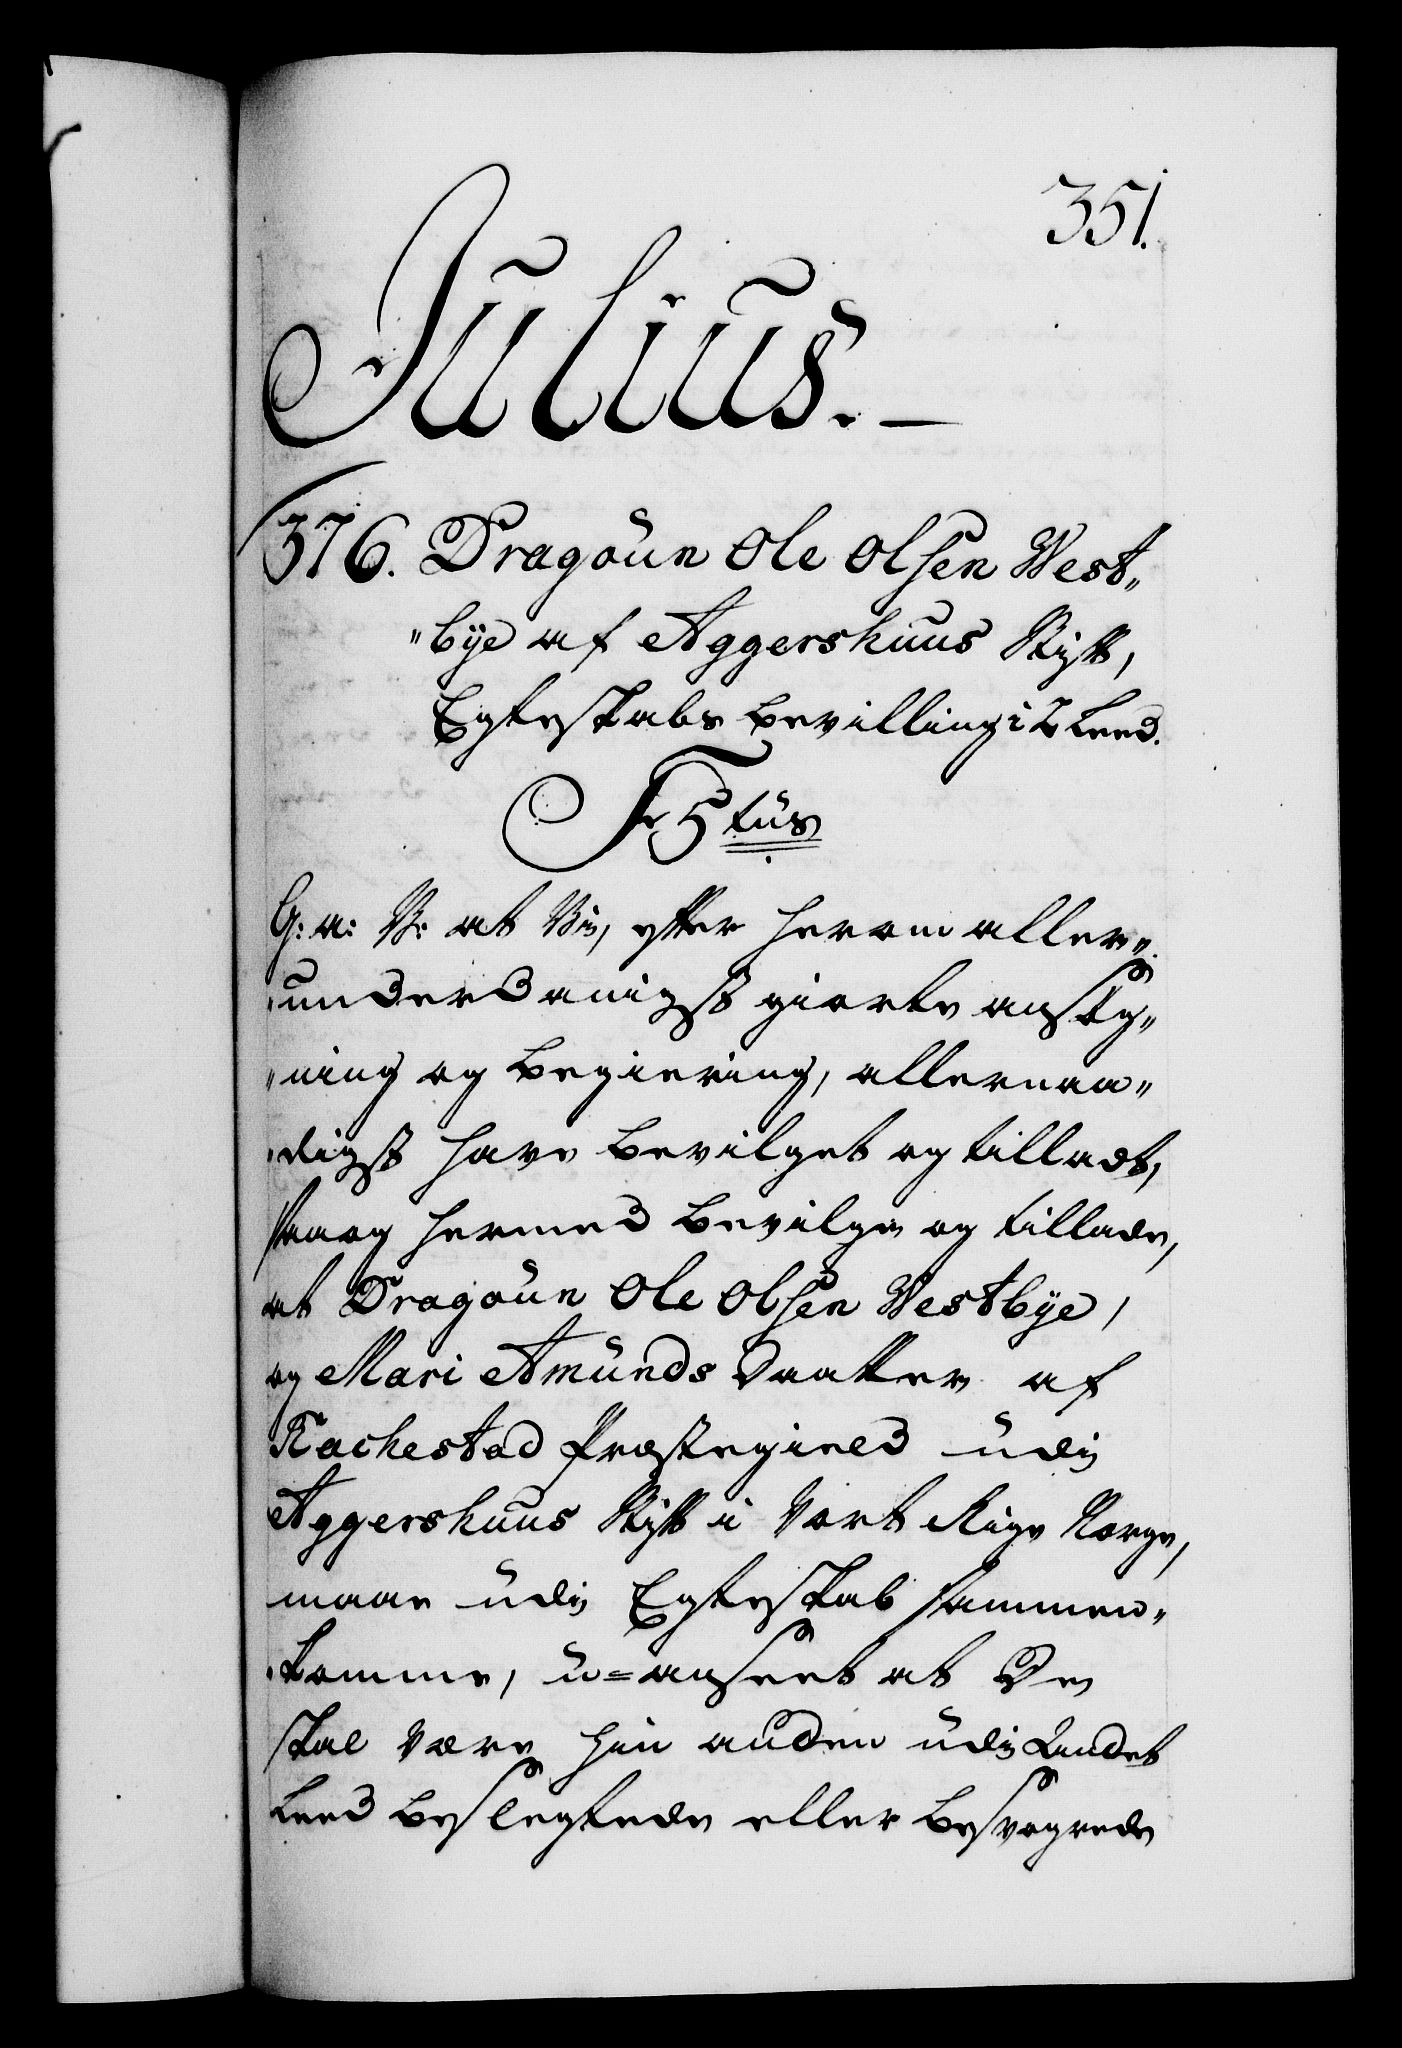 351.
Julius.
376. Dragoun Ole Olsen West„
„bye af Aggershuus Stift,
Egteskabs bevilling i 2 Leed.
F 5tus
G: a: V: at Vi, efter herom aller„
„underdanigst giorte ansøg„
„ning og begiering, allernaa„
„digst have bevilget og tilladt,
saa og hermed bevilge og tillade,
at Dragoun Ole Olsen Westbye,
og Mari Amunds Daatter af
Rachestad Præstegield udi
Aggershuus Stift i Vort Rige Norge,
maae udi Egteskab sammen„
„komme, u=anseet at De
skal være hin anden udi Andet
Leed beslegtede eller besvogrede